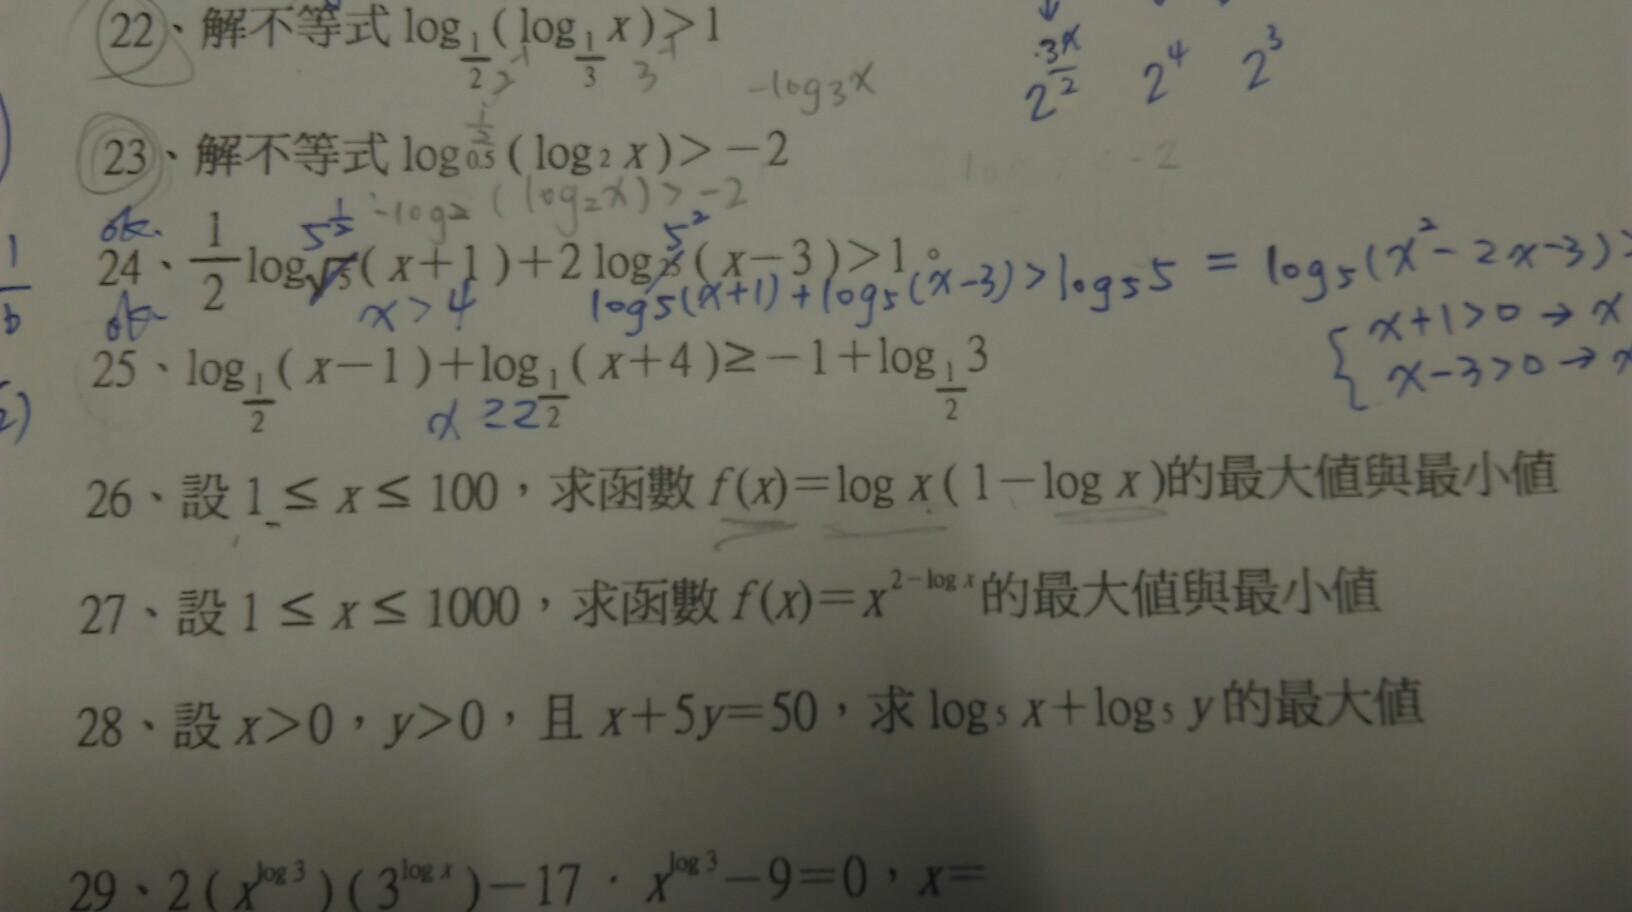 22、解不等式 log_{1/2}(log_{1/3} x)>1
2^{-1} 3^{-1}
-log₃x
2^{3x/2} 2⁴ 2³
23、解不等式 log_{0.5}(log₂ x)>-2
1/2
-log₂(log₂x)>-2
ok.
24、1/2 log_{√5}(x+1)+2 log_{}(x-3)>1。
5^{1/2} 5²
x>4 log5(x+1)+log5(x-3)>log55 = log5(x²-2x-3)>
{ x+1>0→x
x-3>0→x
ok
25、log_{1/2}(x-1)+log_{1/2}(x+4)≥-1+log_{1/2}3
x≥2
26、設 1≤x≤100，求函數 f(x)=log x(1-log x)的最大值與最小值
27、設 1≤x≤1000，求函數 f(x)=x^{2-log x}的最大值與最小值
28、設 x>0，y>0，且 x+5y=50，求 log₅ x+log₅ y 的最大值
29、2(x^{log 3})(3^{log x})-17．x^{log 3}-9=0，x=